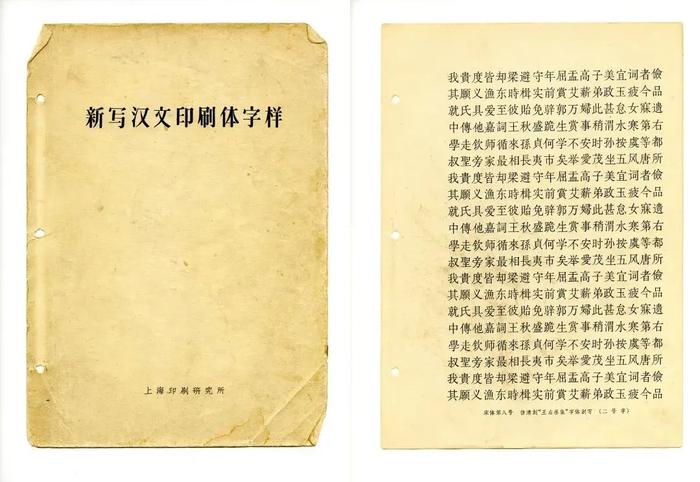 新写汉文印刷体字样
上海印刷研究所
我貴度皆却梁避守年屈盂高子美宜词者儉
其願义漁东時楫实前賞艾薪弟政玉疲今品
就氏具爱至彼贻免辤郭万婦此甚怠女寐遺
中傳他嘉詞王秋盛跪生赏事稍渭水寒第右
學走钦师循來孫貞何学不安时孙按虞等都
叔聖旁家最相長夷市矣举愛茂坐五风唐所
我貴度皆却梁避守年屈盂高子美宜词者儉
其願义漁东時楫实前賞艾薪弟政玉疲今品
就氏具爱至彼贻免辤郭万婦此甚怠女寐遺
中傳他嘉詞王秋盛跪生赏事稍渭水寒第右
學走钦师循來孫貞何学不安时孙按虞等都
叔聖旁家最相長夷市矣举愛茂坐五风唐所
我貴度皆却梁避守年屈盂高子美宜词者儉
其願义漁东時楫实前賞艾薪弟政玉疲今品
就氏具爱至彼贻免辤郭万婦此甚怠女寐遺
中傳他嘉詞王秋盛跪生赏事稍渭水寒第右
學走钦师循來孫貞何学不安时孙按虞等都
叔聖旁家最相長夷市矣举愛茂坐五风唐所
我貴度皆却梁避守年屈盂高子美宜词者儉
其願义漁东時楫实前賞艾薪弟政玉疲今品
宋体第八号 仿清刻“王右丞集”字体创写 （二号字）